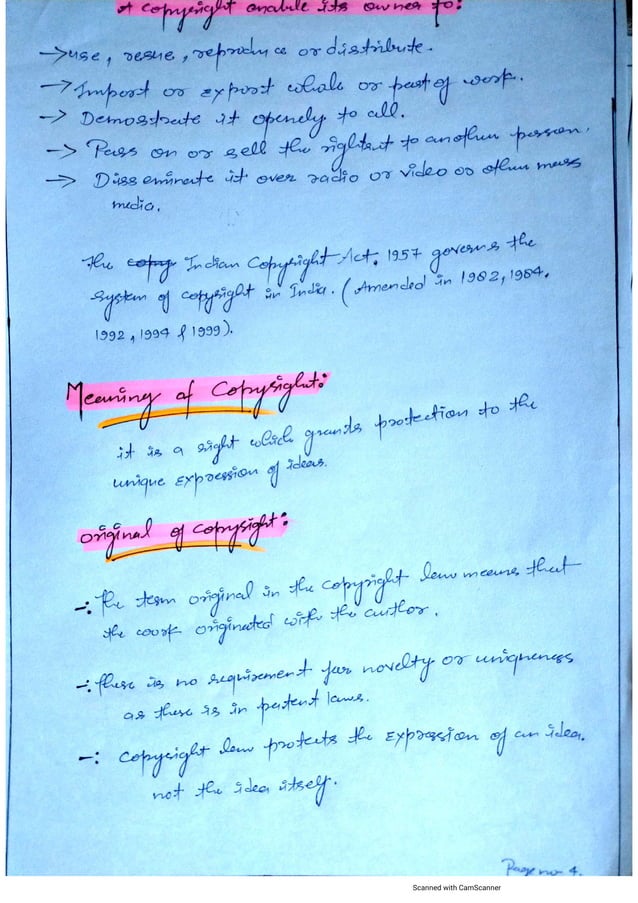 A copyright enable its owner to:
→ use, resue, reproduce or distribute.
→ Import or export whole or part of work.
→ Demostrate it openely to all.
→ Pass on or sell the right to another person.
→ Disseminate it over radio or video or other mass
media.
The copy Indian Copyright Act. 1957 governs the
system of copyright in India. (Amended in 1982, 1984,
1992, 1994 & 1999).
Meaning of Copyright:
it is a right which grands protection to the
unique expression of ideas.
Original of Copyright:
-: The term original in the copyright law means that
the work originated with the author.
-: there is no requirement for novelty or uniqueness
as there is in patent laws.
-: copyright law protects the expression of an idea.
not the idea itself.
Page no 4.
Scanned with CamScanner